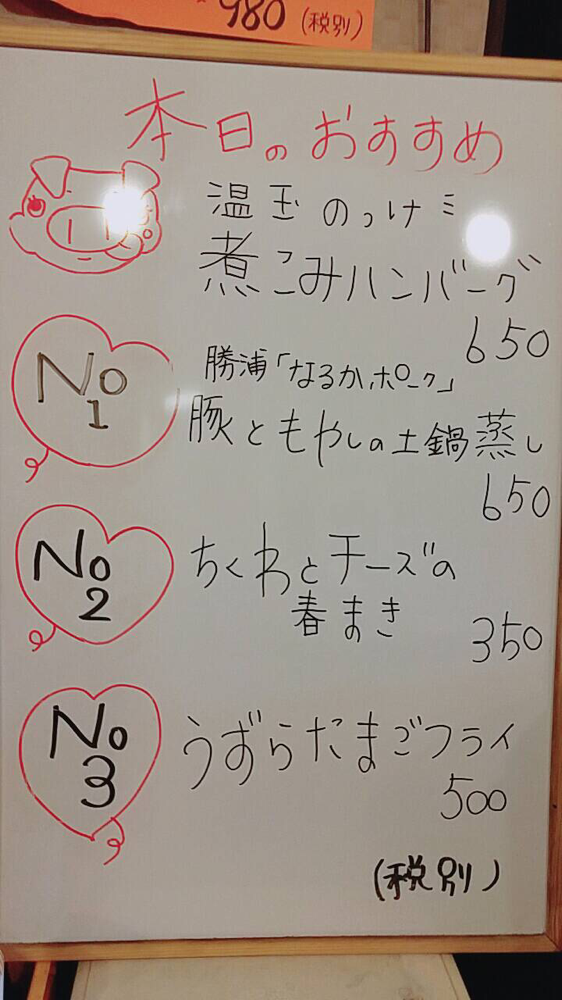 980 (税別)
本日のおすすめ
温玉のっけミ
煮こみハンバーグ
650
No 1
勝浦「なるかポーク」
豚ともやしの土鍋蒸し
650
No 2
ちくわとチーズの
春まき
350
No 3
うずらたまごフライ
500
(税別)